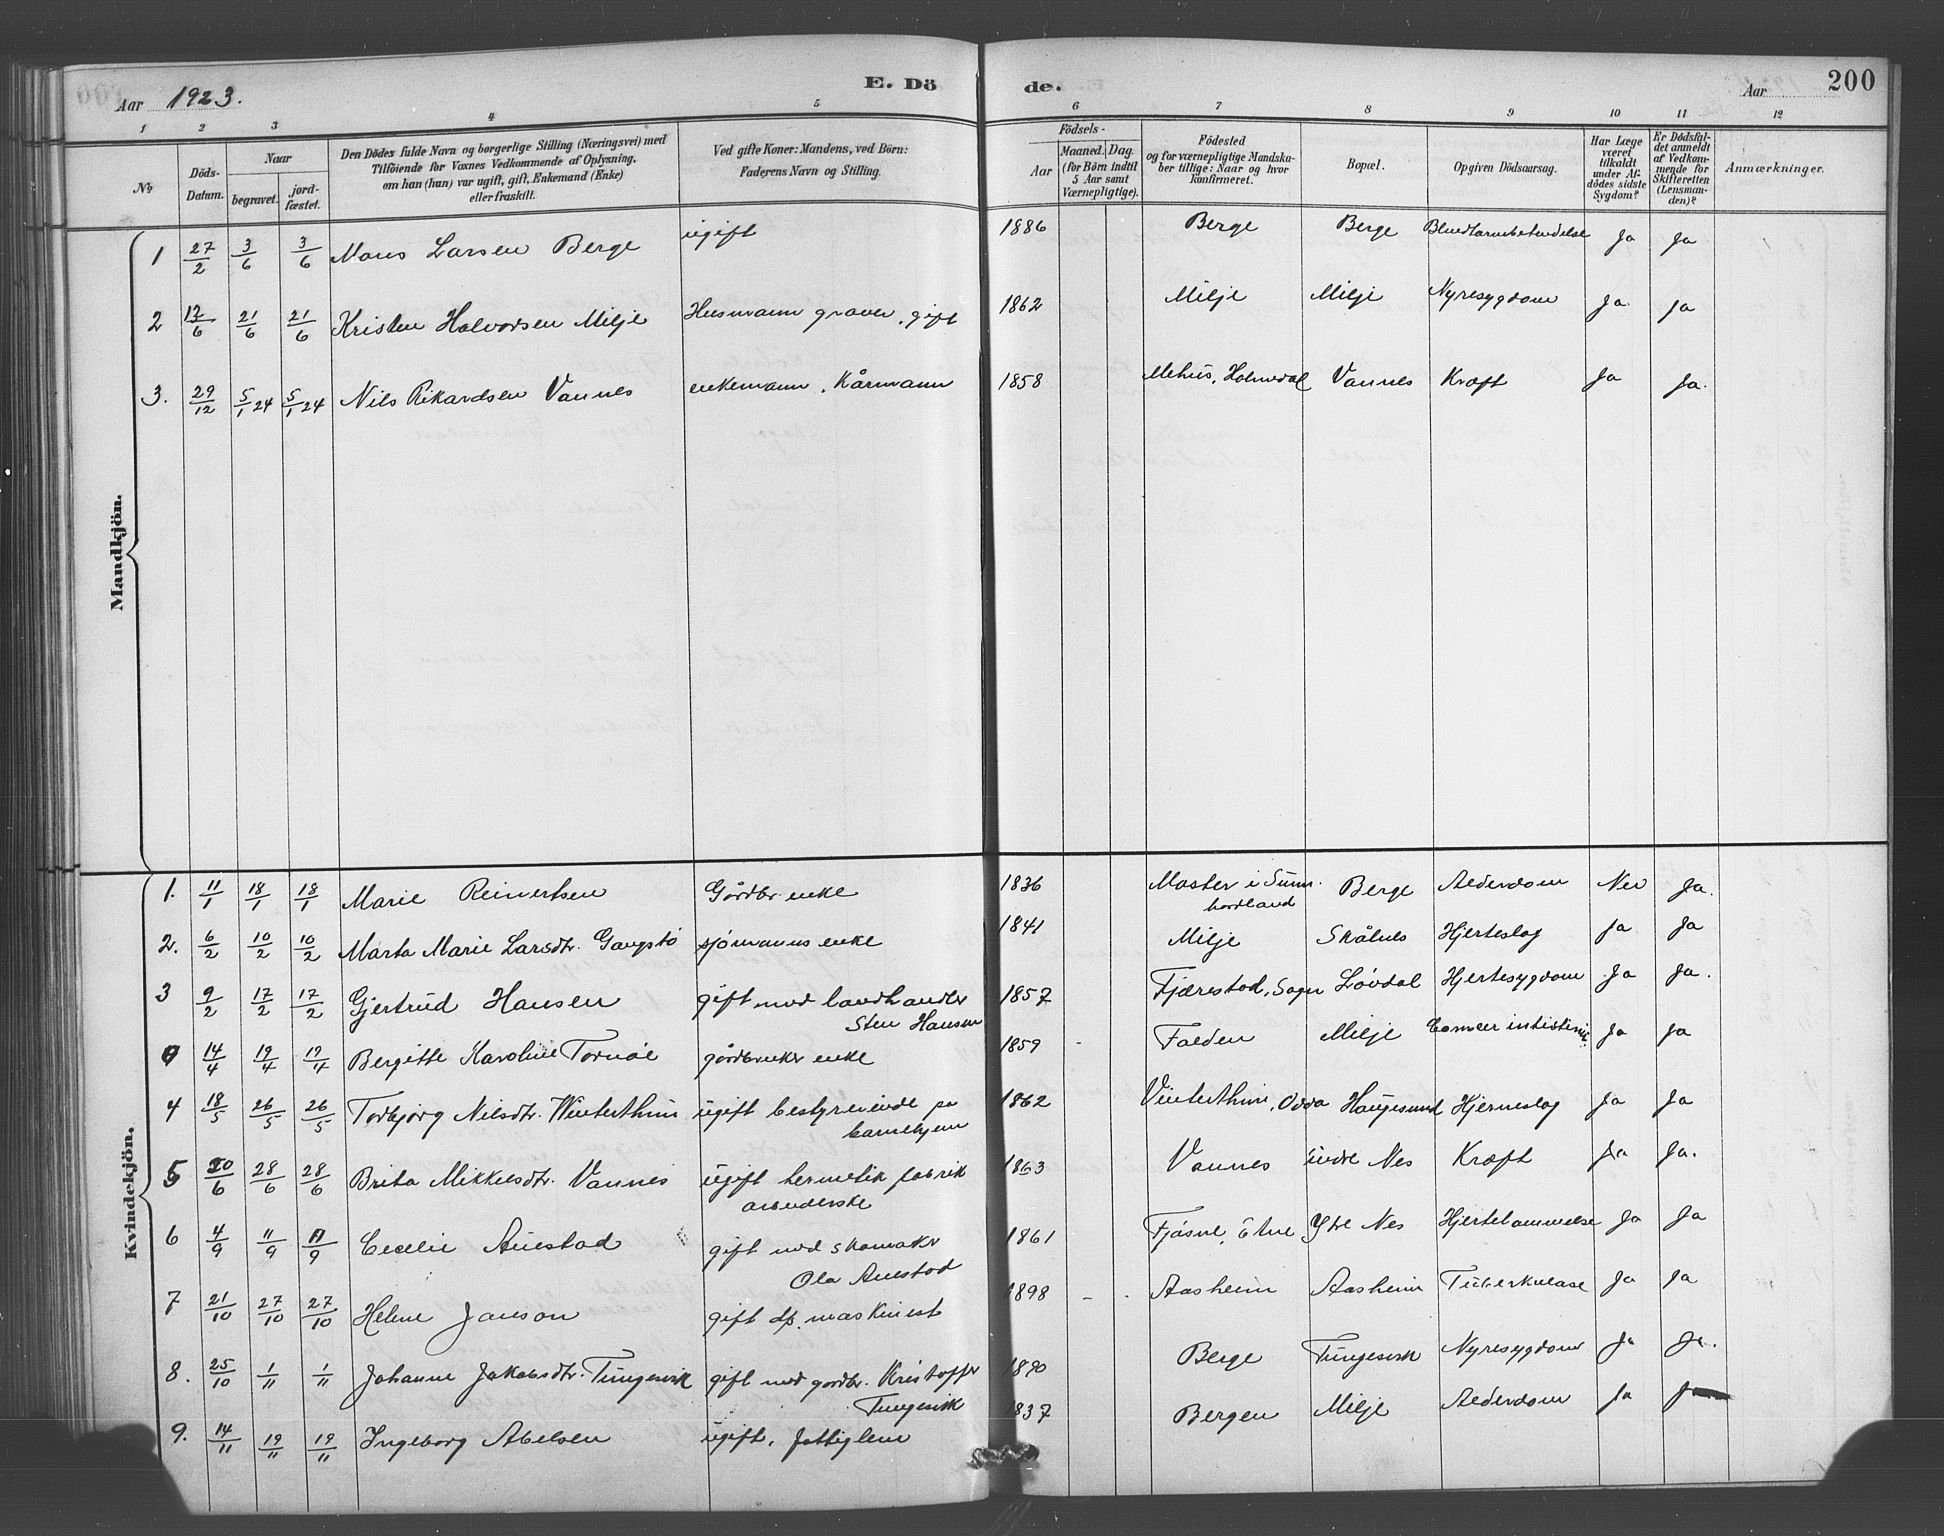 Aar 1923.
E. Dö
de.
Aar
200
1 2 3 4 5 6 7 8 9 10 11 12
No
Döds-Datum.
Naar
begravet.
jord-fæstet.
Den Dödes fulde Navn og borgerlige Stilling (Næringsvei) med
Tilföiende for Voxnes Vedkommende af Oplysning,
om han (hun) var ugift, gift, Enkemand (Enke)
eller fraskilt.
Ved gifte Koner: Mandens, ved Börn:
Faderens Navn og Stilling.
Födsels-
Aar
Maaned. Dag.
(for Börn indtil
5 Aar samt
Værnepligtige).
Födested
og for værnepligtige Mandska-
ber tillige: Naar og hvor
konfirmeret.
Bopæl.
Opgiven Dödsaarsag.
Har Læge
været
tilkaldt
under Af-
dödes sidste
Sygdom?
Er Dödsfal-
det anmeldt
af Vedkom-
mende for
Skifteretten
(Lensman-
den)?
Anmærkninger.
Mandkjön.
1 27/2 3/6 3/6 Mons Larsen Berge ugift 1886 Berge Berge Blindtarmbetendelse Ja Ja
2 17/6 21/6 21/6 Kristen Halvorsen Milje Husmann graver, gift 1862 Milje Milje Nyresygdom Ja Ja
3. 29/12 5/1 24 5/1 24 Nils Rikardsen Vannes enkemann, Kårmann 1858 Mehus, Holmedal Vannes Kræft Ja Ja.
Kvindekjön.
1. 11/1 18/1 18/1 Marie Reinertsen Gårdbr. enke 1836 Moster i Sunn-
hordland Berge Alderdom Nei Ja.
2. 6/2 10/2 10/2 Marta Marie Larsdtr. Gangstø sjømanns enke 1841 Milje Skålnes Hjerteslag Ja Ja
3 9/2 17/2 17/2 Gjertrud Hansen gift med landhandler
Sten Hansen 1857 Fjærestad, Sogn Løvdal Hjertesygdom Ja Ja.
14/4 19/4 19/4 Bergitte Karoline Tornøe gårdbruker enke 1859 Falden Milje Cancer Ja Ja
4 18/5 26/5 26/5 Torbjørg Nilsdtr. Winterthun ugift bestyrerinde på
barnehjem 1862 Vinterthun, Odda Haugesund Hjerneslag Ja Ja
5 20/6 28/6 28/6 Brita Mikkelsdtr. Vannes ugift hermetik fabrik
arbeiderske 1863 Vannes indre Nes Kræft Ja Ja.
6 4/9 11/9 11/9 Cecelie Auestad gift med skomaker
Ola Auestad 1861 Fjøsne, Etne Ytre Nes Hjertelammelse Ja Ja
7 21/10 27/10 27/10 Helene Janson gift dp. maskinist 1898 - - Aasheim Aasheim Tuberkulose Ja Ja
8. 25/10 1/11 1/11 Johanne Jakobsdtr. Tungesvik gift med gårdbr. Kristoffer
Tungesvik 1890 Berge Tungesvik Nyresygdom Ja Ja.
9. 14/11 19/11 19/11 Ingeborg Abelsen ugift, fattiglem 1837 Bergen Milje Alderdom Ja